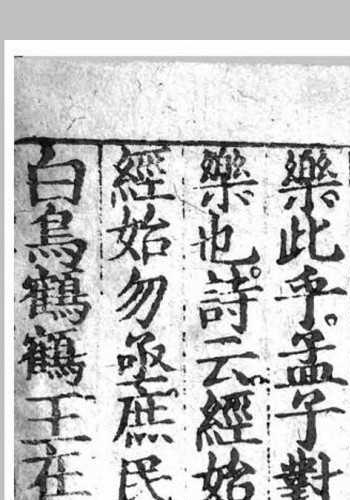 樂此乎。孟子對
樂也。詩云經始
經始勿亟庶民
白鳥鶴鶴王在